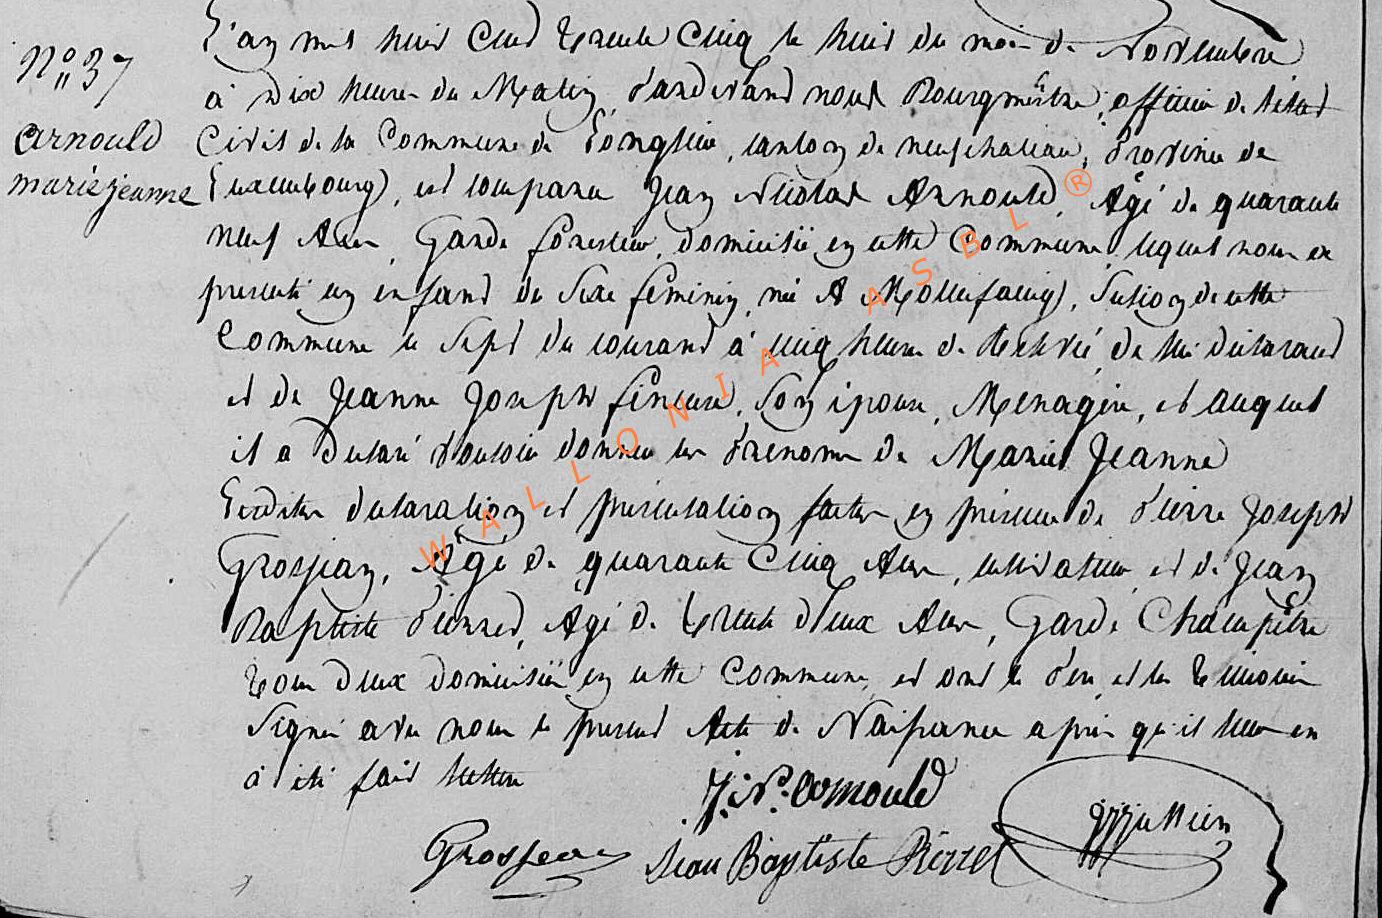 N° 37
arnould
marie jeanne
L'an mil huit Cent trente Cinq le huit du mois de Novembre
à Dix heures du Matin, Pardevant nous Bourgmestre, officier de l'état
Civil de la Commune de Longlier, canton de neufchateau, Province de
Luxembourg, est comparu Jean Nicolas Arnould, Agé de quarante
neuf Ans, Garde forestier, domicilié en cette Commune, lequel nous a
presenté un enfant du Sexe féminin, né A Mollifaing, Section de cette
Commune le Sept du courant à cinq heures de Relevée, de lui déclarant
et de Jeanne Joseph Son épouse, Ménagère, et auquel
il a déclaré vouloir donner les Prénoms de Marie Jeanne
Lesdites déclaration et présentation faites en présence de Pierre Joseph
Grosjean, Agé de quarante Cinq Ans, cultivateur et de Jean
Baptiste Pierret, Agé de trente Deux Ans, Garde Champêtre
tous deux domiciliés en cette Commune, et ont le Père et les témoins
Signé avec nous le présent Acte de Naissance après qu'il leur en
à été fait lecture
J. N. Arnould
Grosjean
Jean Baptiste Pierret
WALLONIA ASBL ®